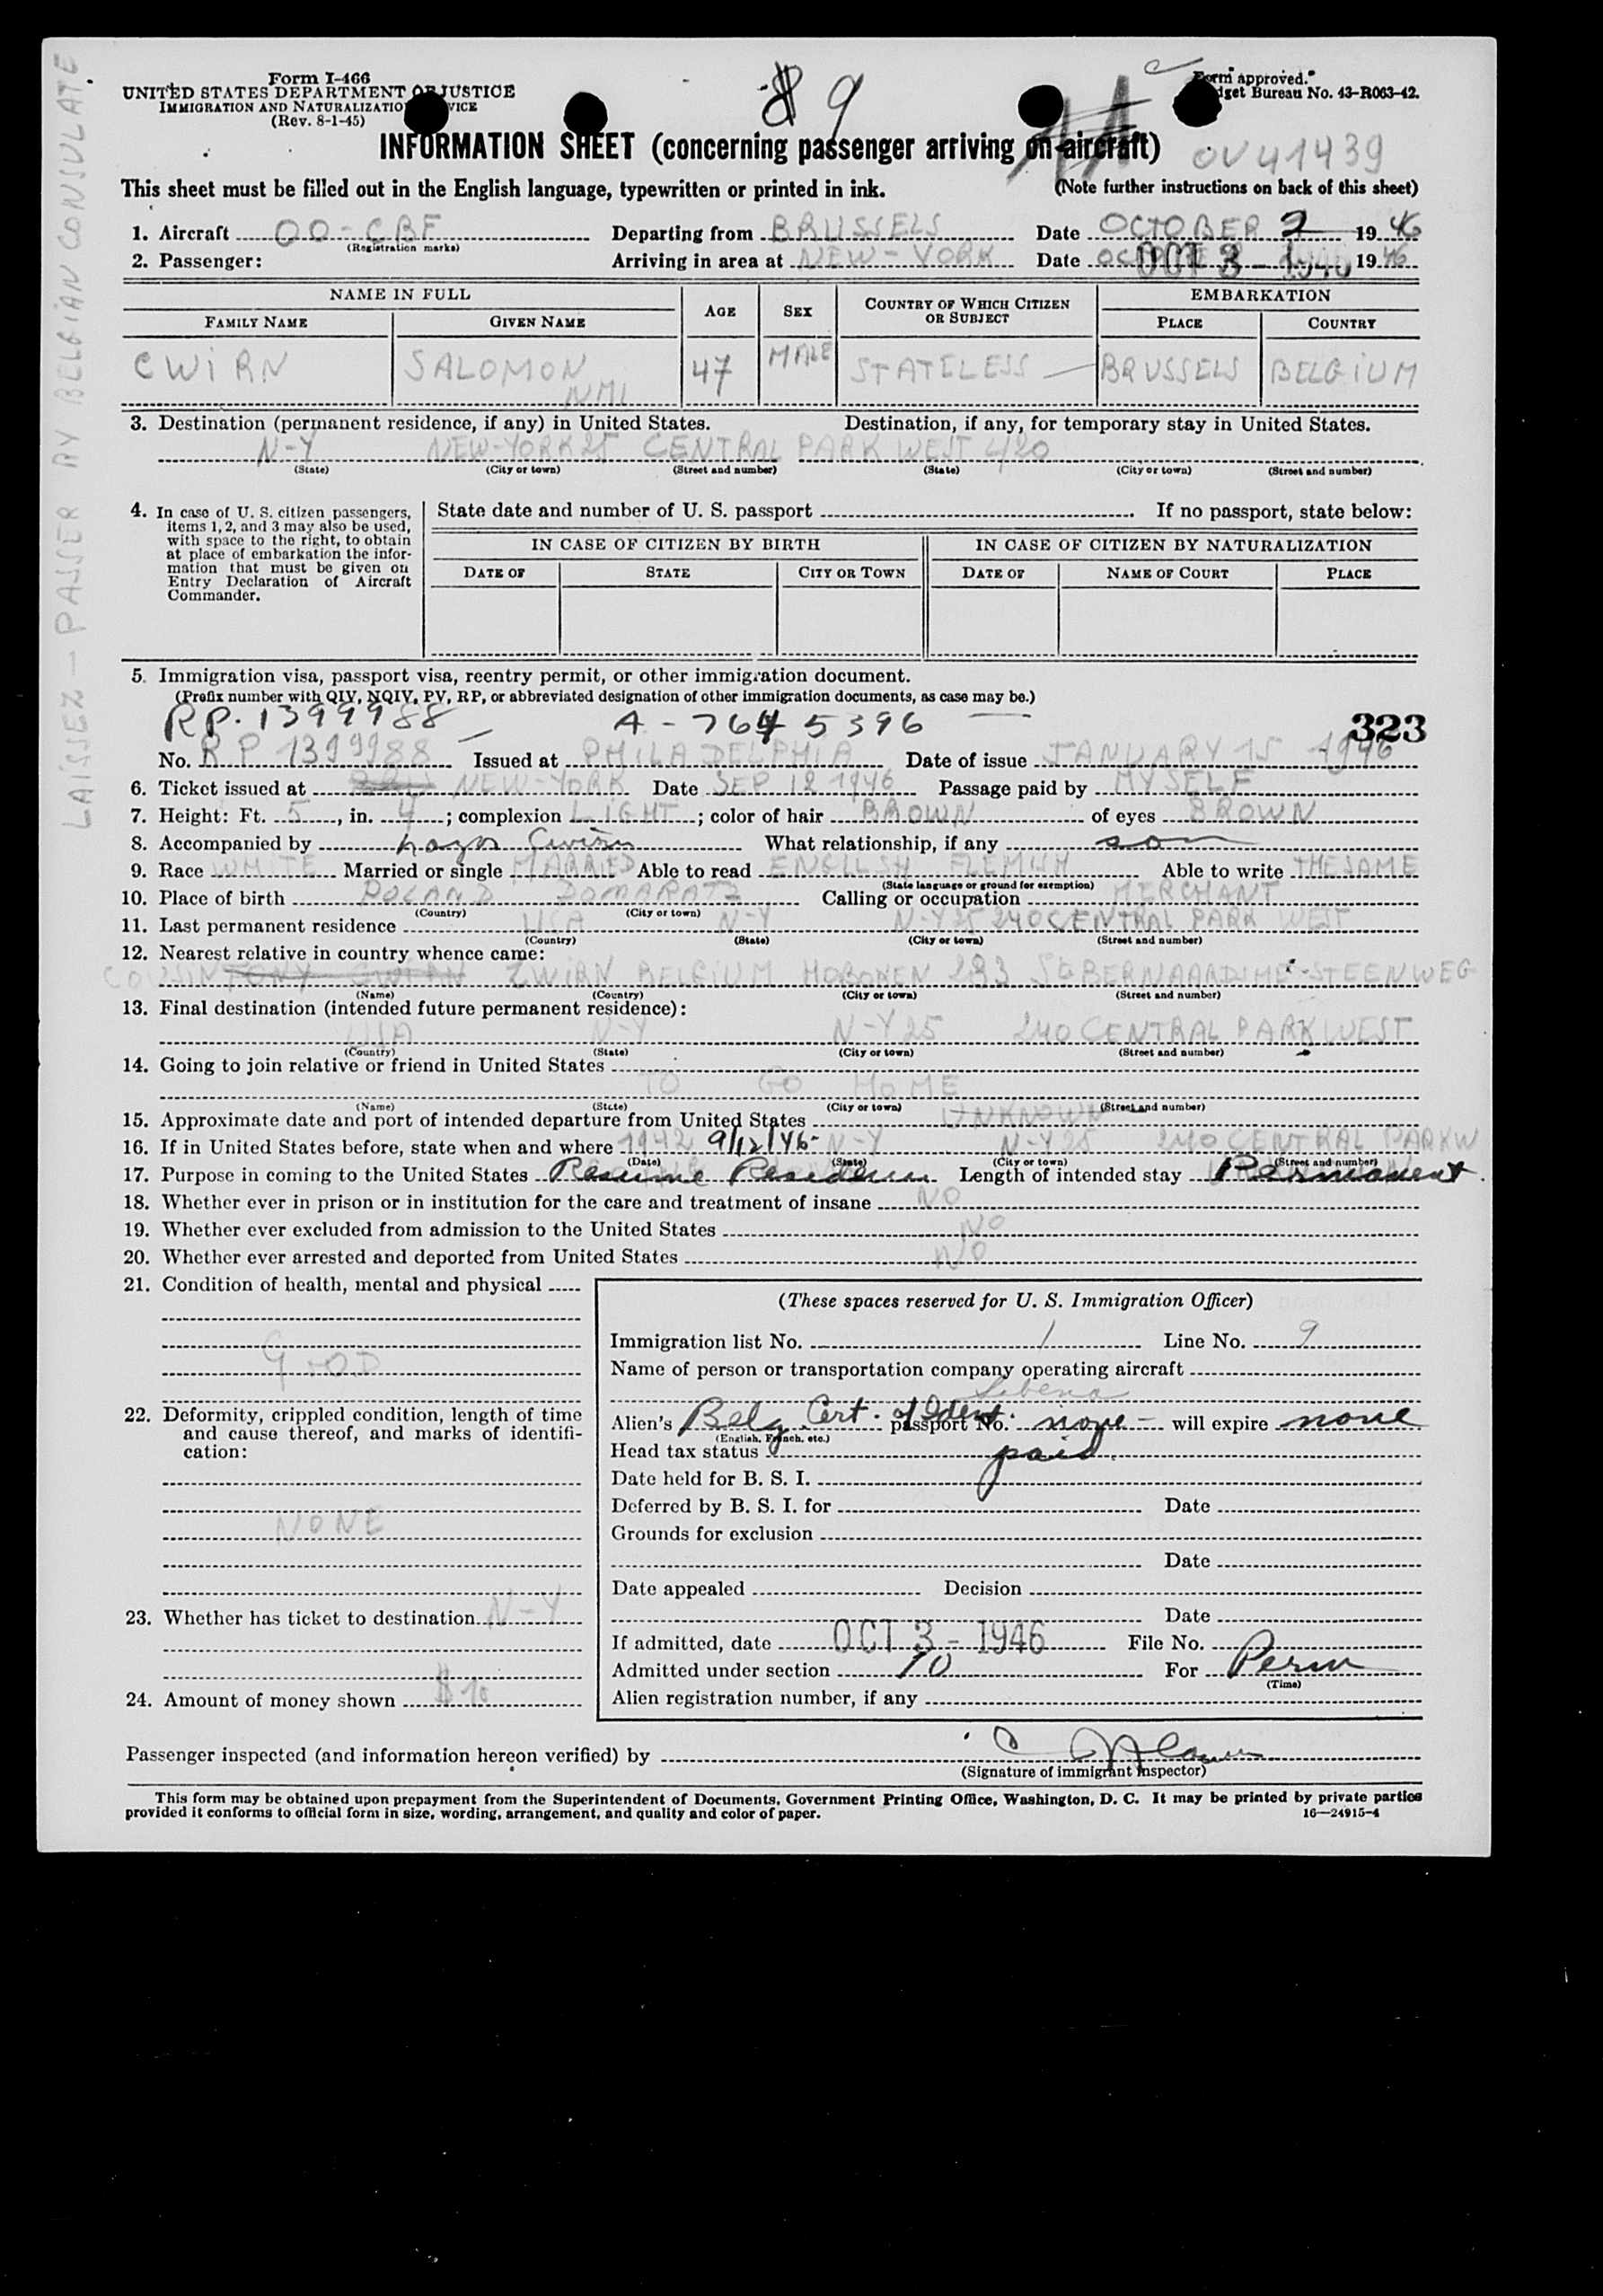 Form I-466
UNITED STATES DEPARTMENT OF JUSTICE
IMMIGRATION AND NATURALIZATION SERVICE
(Rev. 8-1-45)
Form approved.
Budget Bureau No. 43-R063-42.
8 9
INFORMATION SHEET (concerning passenger arriving on aircraft)
OV41439
This sheet must be filled out in the English language, typewritten or printed in ink. (Note further instructions on back of this sheet)
LAISSEZ - PASSER BY BELGIAN CONSULATE
1. Aircraft OO-CBF Departing from BRUSSELS Date OCTOBER 2 1946
(Registration marks)
2. Passenger: Arriving in area at NEW-YORK Date OCT 3 - 1946 1946
NAME IN FULL AGE SEX COUNTRY OF WHICH CITIZEN OR SUBJECT EMBARKATION
FAMILY NAME GIVEN NAME PLACE COUNTRY
CWIRN SALOMON NMI 47 MALE STATELESS — BRUSSELS BELGIUM
3. Destination (permanent residence, if any) in United States. Destination, if any, for temporary stay in United States.
N-Y NEW-YORK 25 CENTRAL PARK WEST 420
(State) (City or town) (Street and number) (State) (City or town) (Street and number)
4. In case of U. S. citizen passengers, items 1, 2, and 3 may also be used, with space to the right, to obtain at place of embarkation the information that must be given on Entry Declaration of Aircraft Commander.
State date and number of U. S. passport If no passport, state below:
IN CASE OF CITIZEN BY BIRTH IN CASE OF CITIZEN BY NATURALIZATION
DATE OF STATE CITY OR TOWN DATE OF NAME OF COURT PLACE
5. Immigration visa, passport visa, reentry permit, or other immigration document.
(Prefix number with QIV, NQIV, PV, RP, or abbreviated designation of other immigration documents, as case may be.)
RP. 1399988 — A - 7645396 — 323
No. RP 1399988 Issued at PHILADELPHIA Date of issue JANUARY 15 - 1946
6. Ticket issued at NEW-YORK Date SEP 12 1946 Passage paid by MYSELF
7. Height: Ft. 5, in. 4; complexion LIGHT; color of hair BROWN of eyes BROWN
8. Accompanied by Cwirn What relationship, if any son
9. Race WHITE Married or single MARRIED Able to read ENGLISH FLEMISH Able to write THE SAME
(State language or ground for exemption)
10. Place of birth POLAND DOMARATZ Calling or occupation MERCHANT
(Country) (City or town)
11. Last permanent residence USA N-Y N-Y 25 240 CENTRAL PARK WEST
(Country) (State) (City or town) (Street and number)
12. Nearest relative in country whence came:
COUSIN TONY CWIRN ZWIRN BELGIUM HOBOKEN 283 STEENWEG
(Name) (Country) (City or town) (Street and number)
13. Final destination (intended future permanent residence):
USA N-Y N-Y 25 240 CENTRAL PARK WEST
(Country) (State) (City or town) (Street and number)
14. Going to join relative or friend in United States
TO GO HOME
(Name) (State) (City or town) (Street and number)
15. Approximate date and port of intended departure from United States UNKNOWN
16. If in United States before, state when and where 1942 9/12/46- N-Y N-Y 25 240 CENTRAL PARK W
(Date) (State) (City or town) (Street and number)
17. Purpose in coming to the United States Resume Residence Length of intended stay Permanent
18. Whether ever in prison or in institution for the care and treatment of insane NO
19. Whether ever excluded from admission to the United States NO
20. Whether ever arrested and deported from United States NO
21. Condition of health, mental and physical
GOOD
22. Deformity, crippled condition, length of time and cause thereof, and marks of identification:
NONE
23. Whether has ticket to destination N-Y
24. Amount of money shown $ 10
(These spaces reserved for U. S. Immigration Officer)
Immigration list No. 1 Line No. 9
Name of person or transportation company operating aircraft
Sabena
Alien's Belg Cert. of Ident. passport No. none — will expire none
(English, French, etc.)
Head tax status paid
Date held for B. S. I.
Deferred by B. S. I. for Date
Grounds for exclusion
Date
Date appealed Decision
Date
If admitted, date OCT 3 - 1946 File No.
Admitted under section 10 For Perm
(Time)
Alien registration number, if any
Passenger inspected (and information hereon verified) by
(Signature of immigrant inspector)
This form may be obtained upon prepayment from the Superintendent of Documents, Government Printing Office, Washington, D. C. It may be printed by private parties
provided it conforms to official form in size, wording, arrangement, and quality and color of paper. 16—24915-4